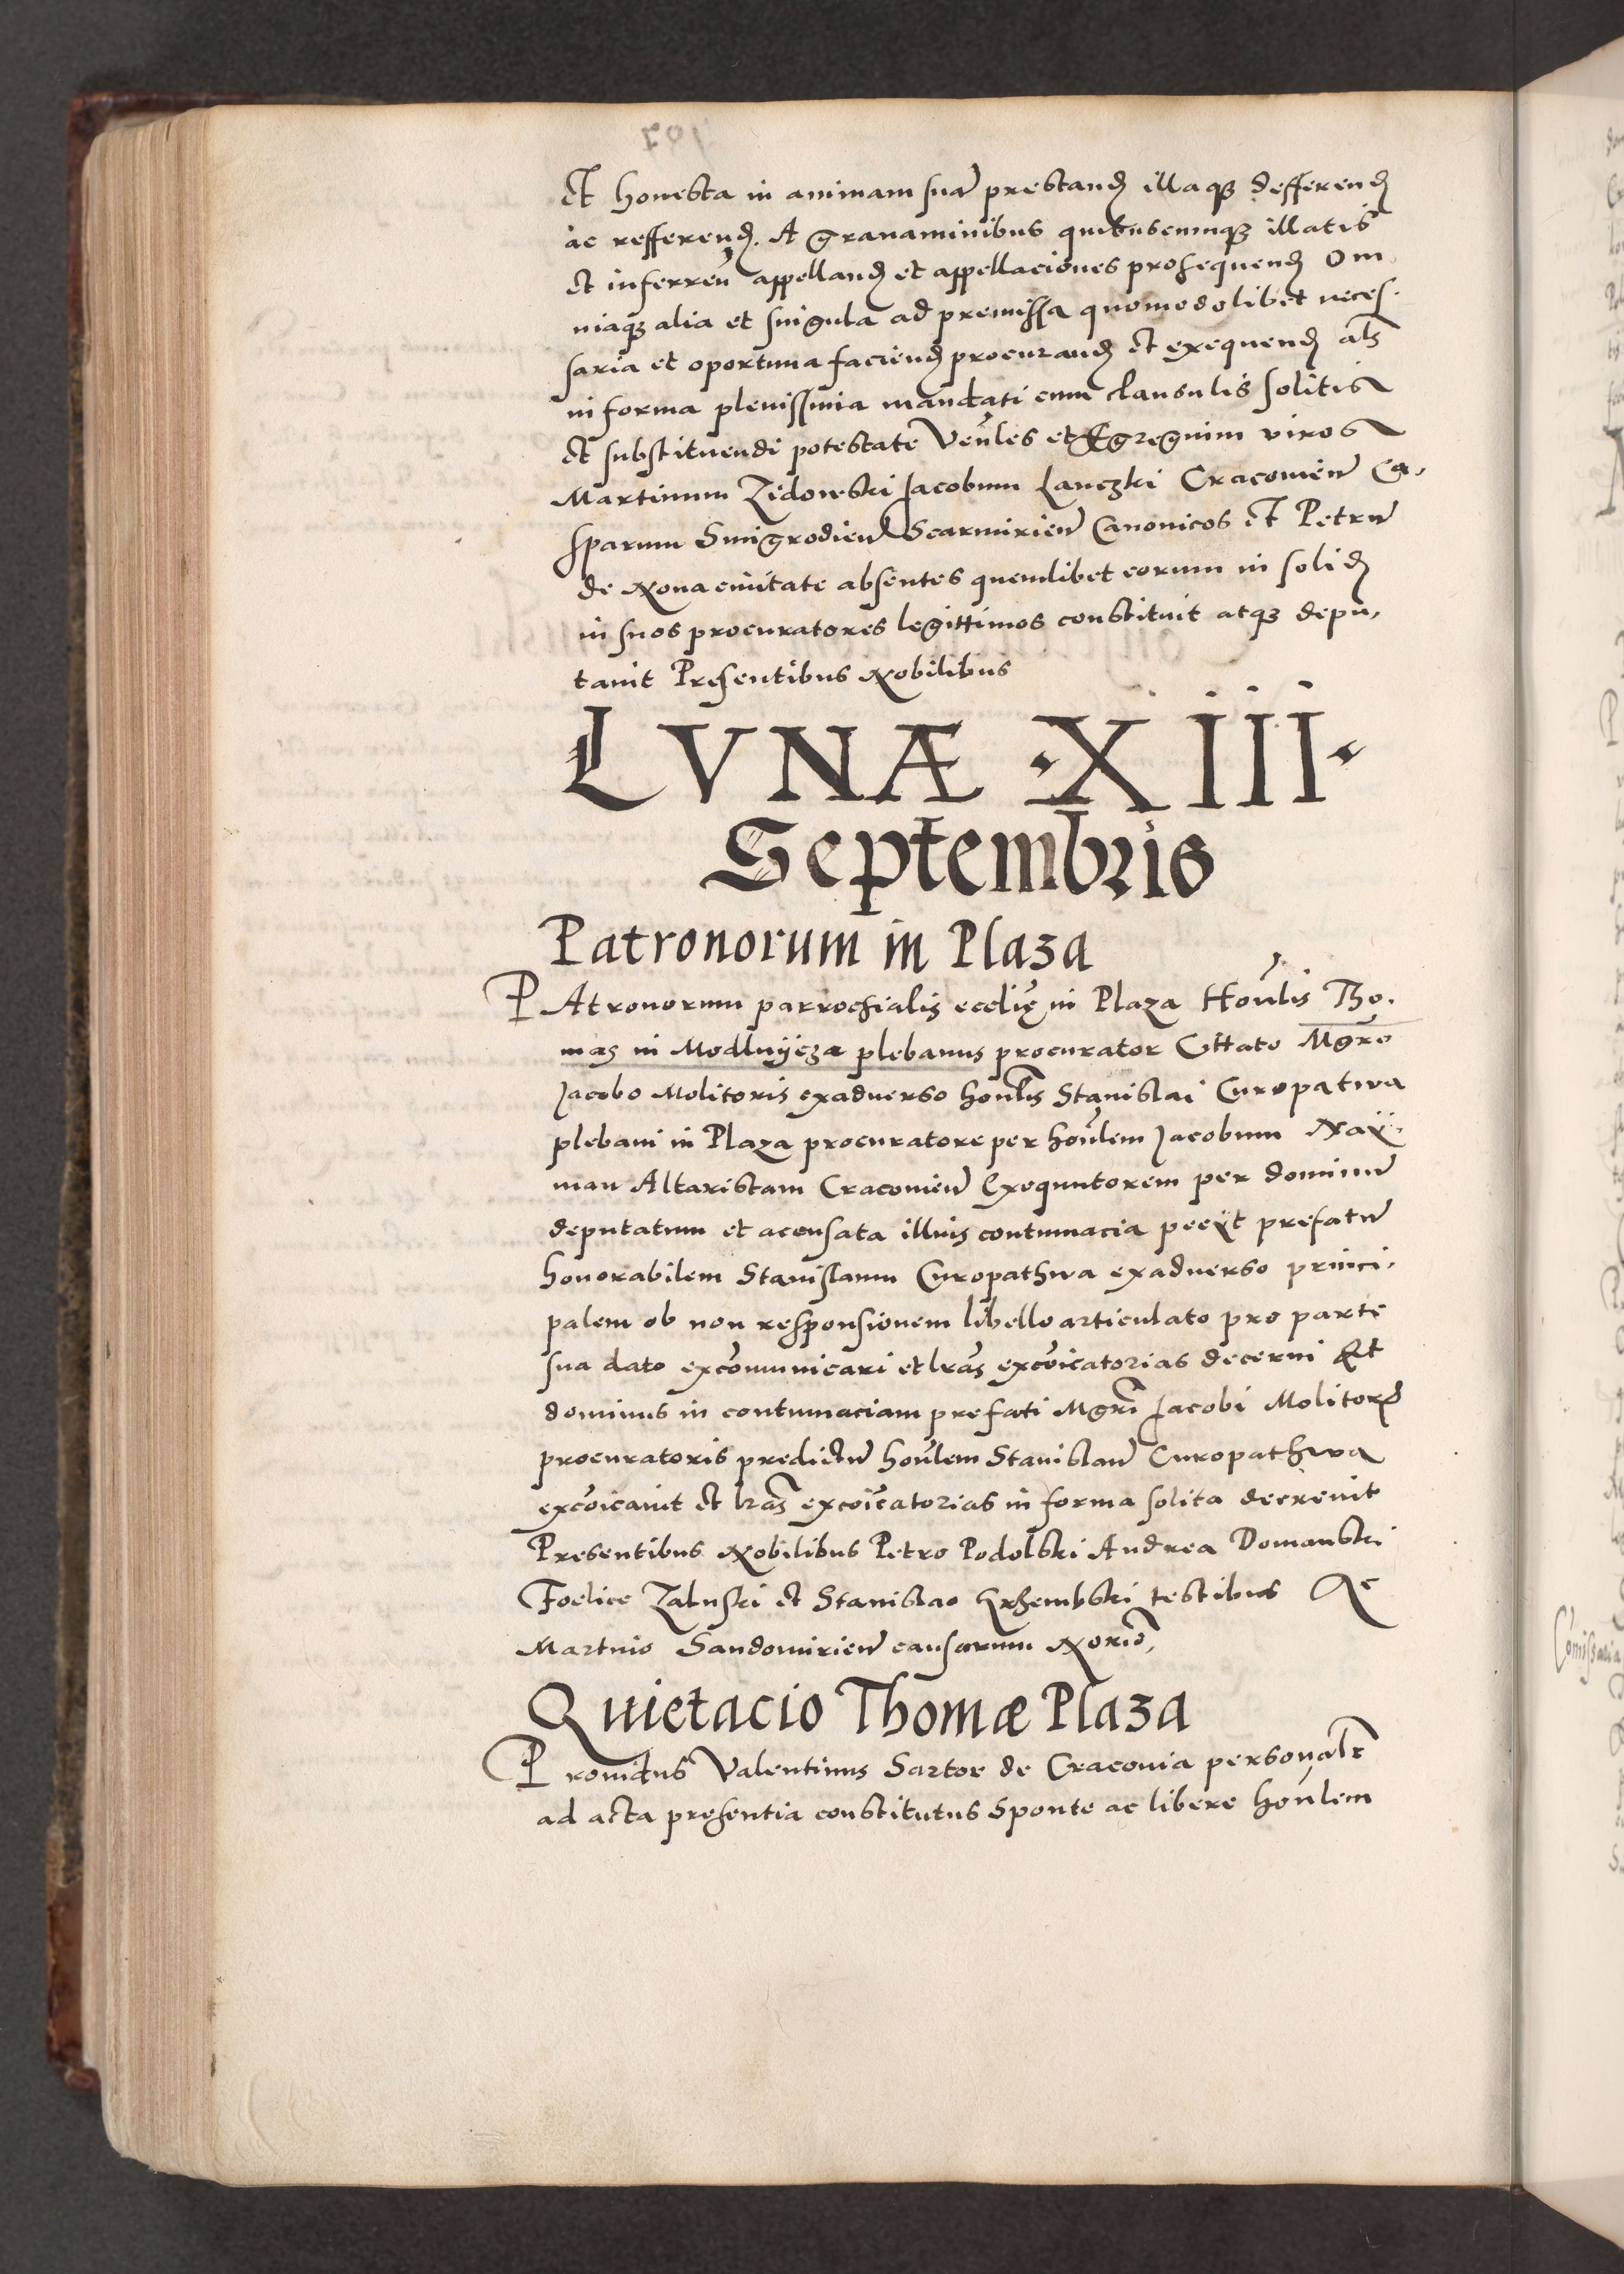 Et honesta in animam suã prestand illaqꝫ defferend
ac refferend. A gravaminibus quibuscunqꝫ illatis
et inferreñ appelland et appellaciones prosequend Om
niaqꝫ alia et singula ad premissa quomodolibet neces.
saria et oportuna faciend procurand et exequend als
in forma plenissima mandati cum clausulis solitis
et substituendi potestate Veñles et Egregium viros
Martinum Zidowski Jacobum Lanczki Cracovieñ Ca,
sparum Smigrodieñ Scarmirieñ Canonicos Et Petrũ
de Nova civitate absentes quemlibet eorum in solid
in suos procuratores legittimos constituit atqꝫ depu,
tavit Presentibus Nobilibus
LVNÆ ·XIII·
Septembris
Patronorum in Plaza
PAtronorum parrochialis ecclię in Plaza Hoñlis Tho.
mas in Modlnycza plebanus procurator Cittato Mgro
Jacobo Molitoris exadverso hoñlis Stanislai Curopatwa
plebani in Plaza procuratore per hoñlem Jacobum Naÿ.
man Altaristam Cracovieñ Exequutorem per dominũ
deputatum et accusata illius contumacia peeyt prefatũ
honorabilem Stanislaum Curopathwa exadverso princi.
palem ob non responsionem libello articulato pro parte
sua dato excõmunicari et lras excoicatorias decerni Et
dominus in contumaciam prefati Mgri Jacobi Molitoris
procuratoris predictũ hoñlem Stanislaũ Curopathwa
excoicavit et lras excoicatorias in forma solita decrevit
Presentibus Nobilibus Petro Podolski Andrea Domanski
Foelice Zaluski et Stanislao Krzembski testibus Ac
Martino Sandomirieñ causarum Norio,
Quietacio Thomæ Plaza
Providus Valentinus Sartor de Cracovia personalr
ad acta presentia constitutus sponte ac libere hoñlem